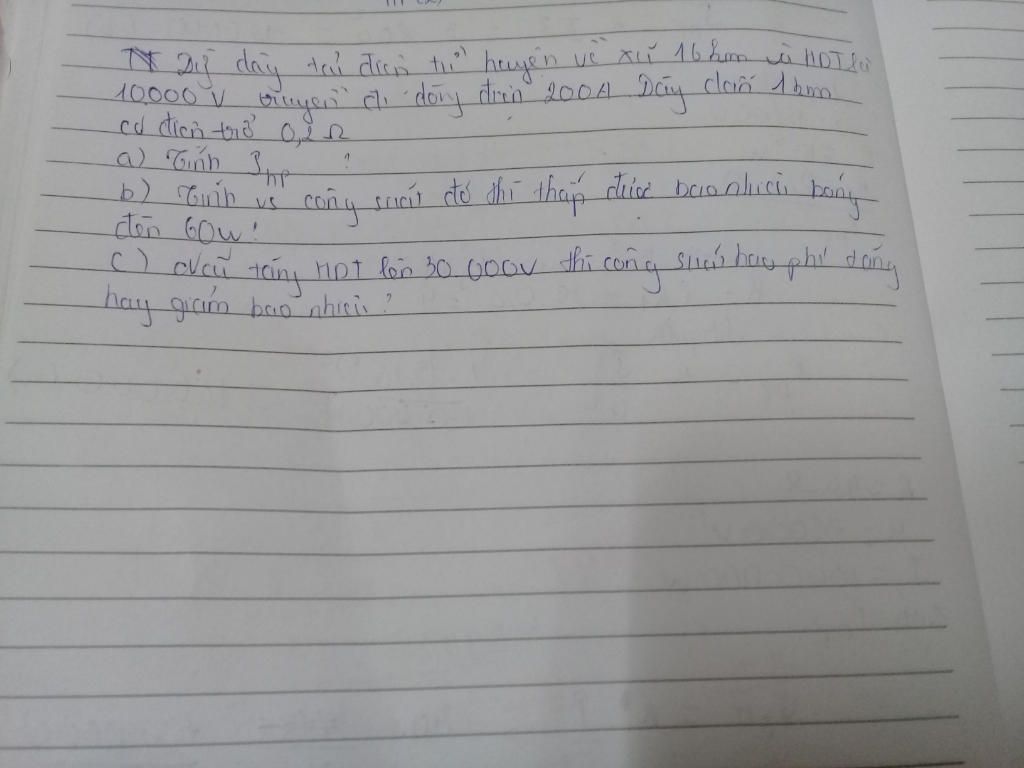 Dg dây tải điện từ huyện về xã 16 km và HĐT là
10000 V truyền đi dòng điện 200A Dây dẫn 1km
có điện trở 0,2 Ω
a) Tính P hp ?
b) Tính vs công suất đó thì thắp được bao nhiêu bóng
đèn 60w !
c) Nếu tăng HĐT lên 30 000V thì công suất hao phí tăng
hay giảm bao nhiêu ?